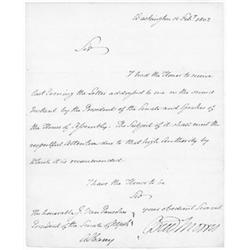 Washington 12 Feb.y 1802
Sir
I had the Honor to receive
last Evening the Letter addressed to me on the second
Instant by the President of the Senate and Speaker of
the House of Assembly. The Subject of it shall meet the
respectful Attention due to that high Authority by
which it is recommended.
I have the Honor to be
Sir
The honorable J. Van Rensselaer
your obedient Servant
President of the Senate of
Albany
Gouv Morris